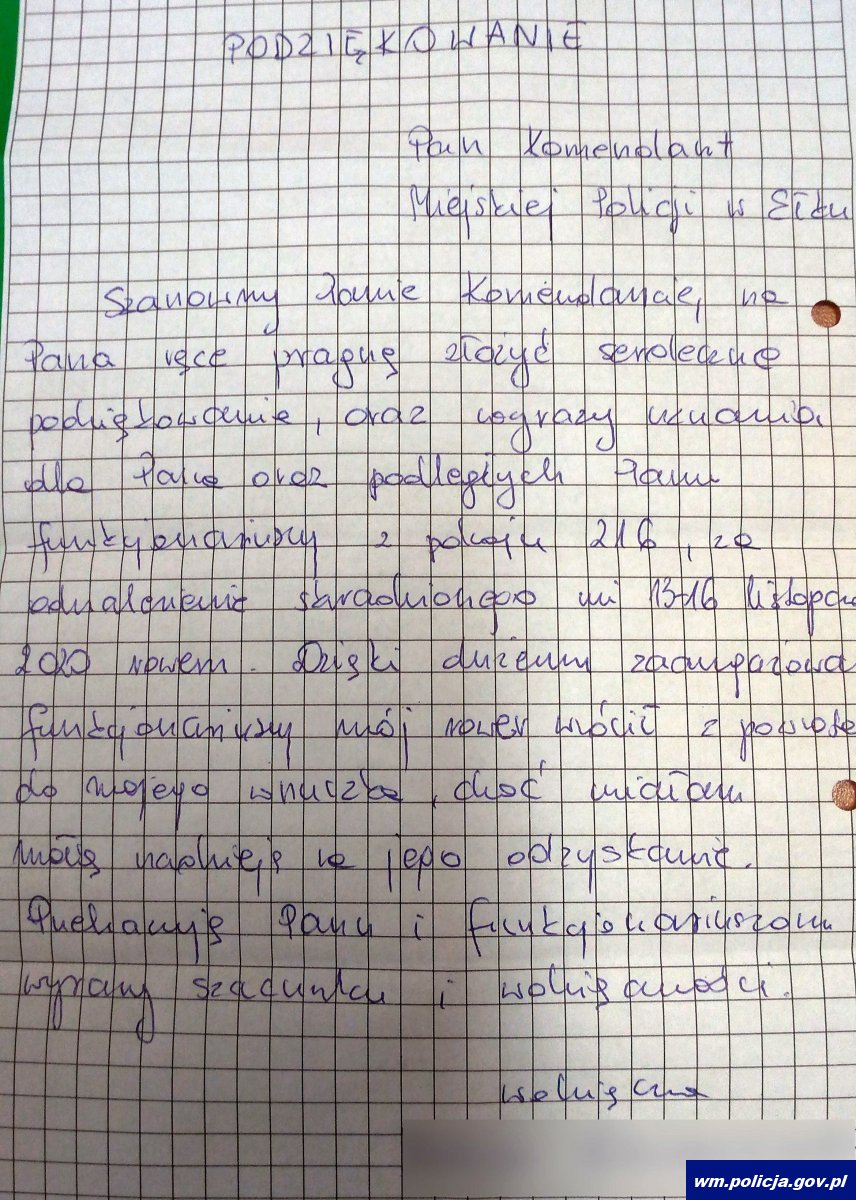 PODZIĘKOWANIE
Pan Komendant
Miejskiej Policji w Ełku
Szanowny Panie Komendancie, na
Pana ręce pragnę złożyć serdeczne
podziękowanie, oraz wyrazy uznania
dla Pana oraz podległych Panu
funkcjonariuszy z pokoju 216, za
odnalezienie skradzionego mi 13-16 listopada
2020 rower. Dzięki dużemu zaangażowa
funkcjonariuszy mój rower wrócił z powrote
do mojego wnuczka, choć miałam
małą nadzieję na jego odzyskanie.
Przekazuję Panu i funkcjonariuszom
wyrazy szacunku i wdzięczności.
wdzięczna
wm.policja.gov.pl